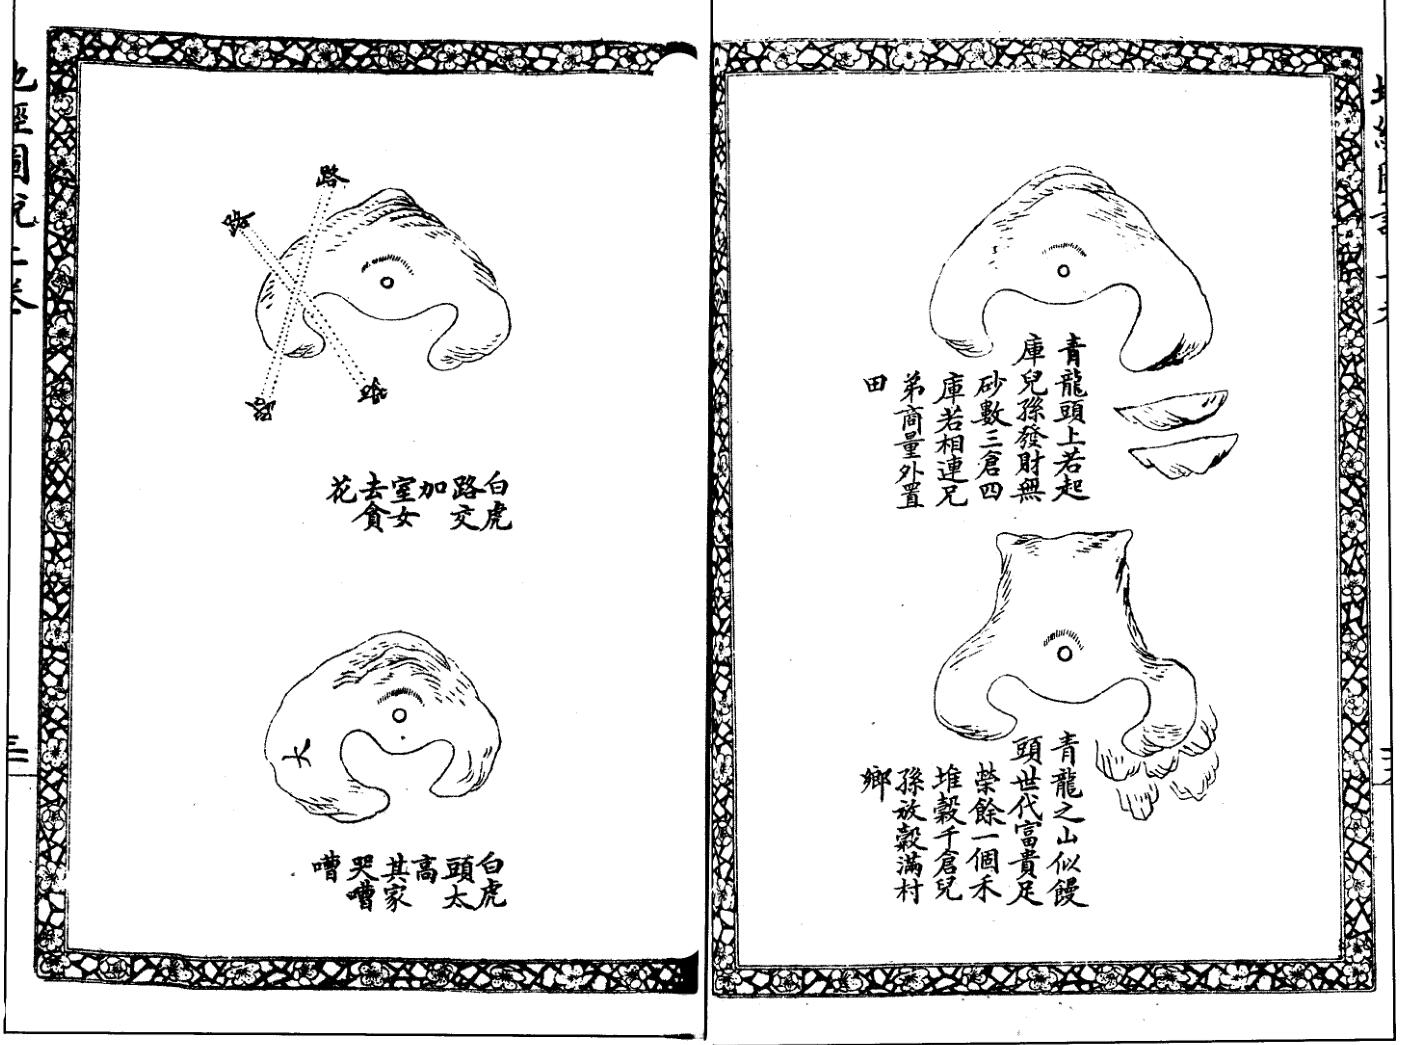 青龍頭上若起
庫兒孫發財無
砂數三倉四
庫若相連兄
弟商量外置
田
青龍之山似饅
頭世代富貴足
榮餘一個禾
堆穀千倉兒
孫放穀滿村
鄉
路
路
路
路
白虎
路交
加
室女
去貪
花
大
白虎
頭太
高
其家
哭嘈
嘈
地經圖說
三